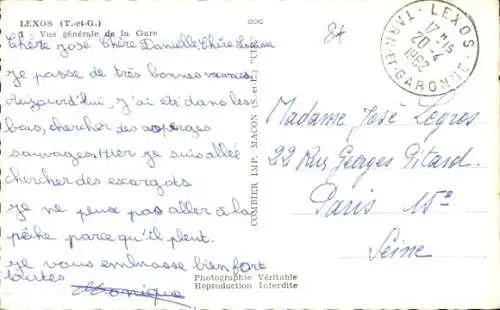 LEXOS (T.-et-G.)
1 - Vue générale de la Gare
Chère José Chère Danielle Chère Louise
je passe de très bonnes vacances,
aujourd'hui, j'ai été dans les
bois, chercher des asperges
sauvages. Hier je suis allée
chercher des escargots
je ne peux pas aller à la
pêche parce qu'il pleut.
je vous embrasse bien fort
toutes
Monique
COMBIER IMP. MACON (S.-et-L.) "CIM"
Photographie Véritable
Reproduction Interdite
84
LEXOS
17H15
20-4
1963
TARN-ET-GARONNE
Madame José Legros
22 Rue Georges Pitard.
Paris 15e
Seine